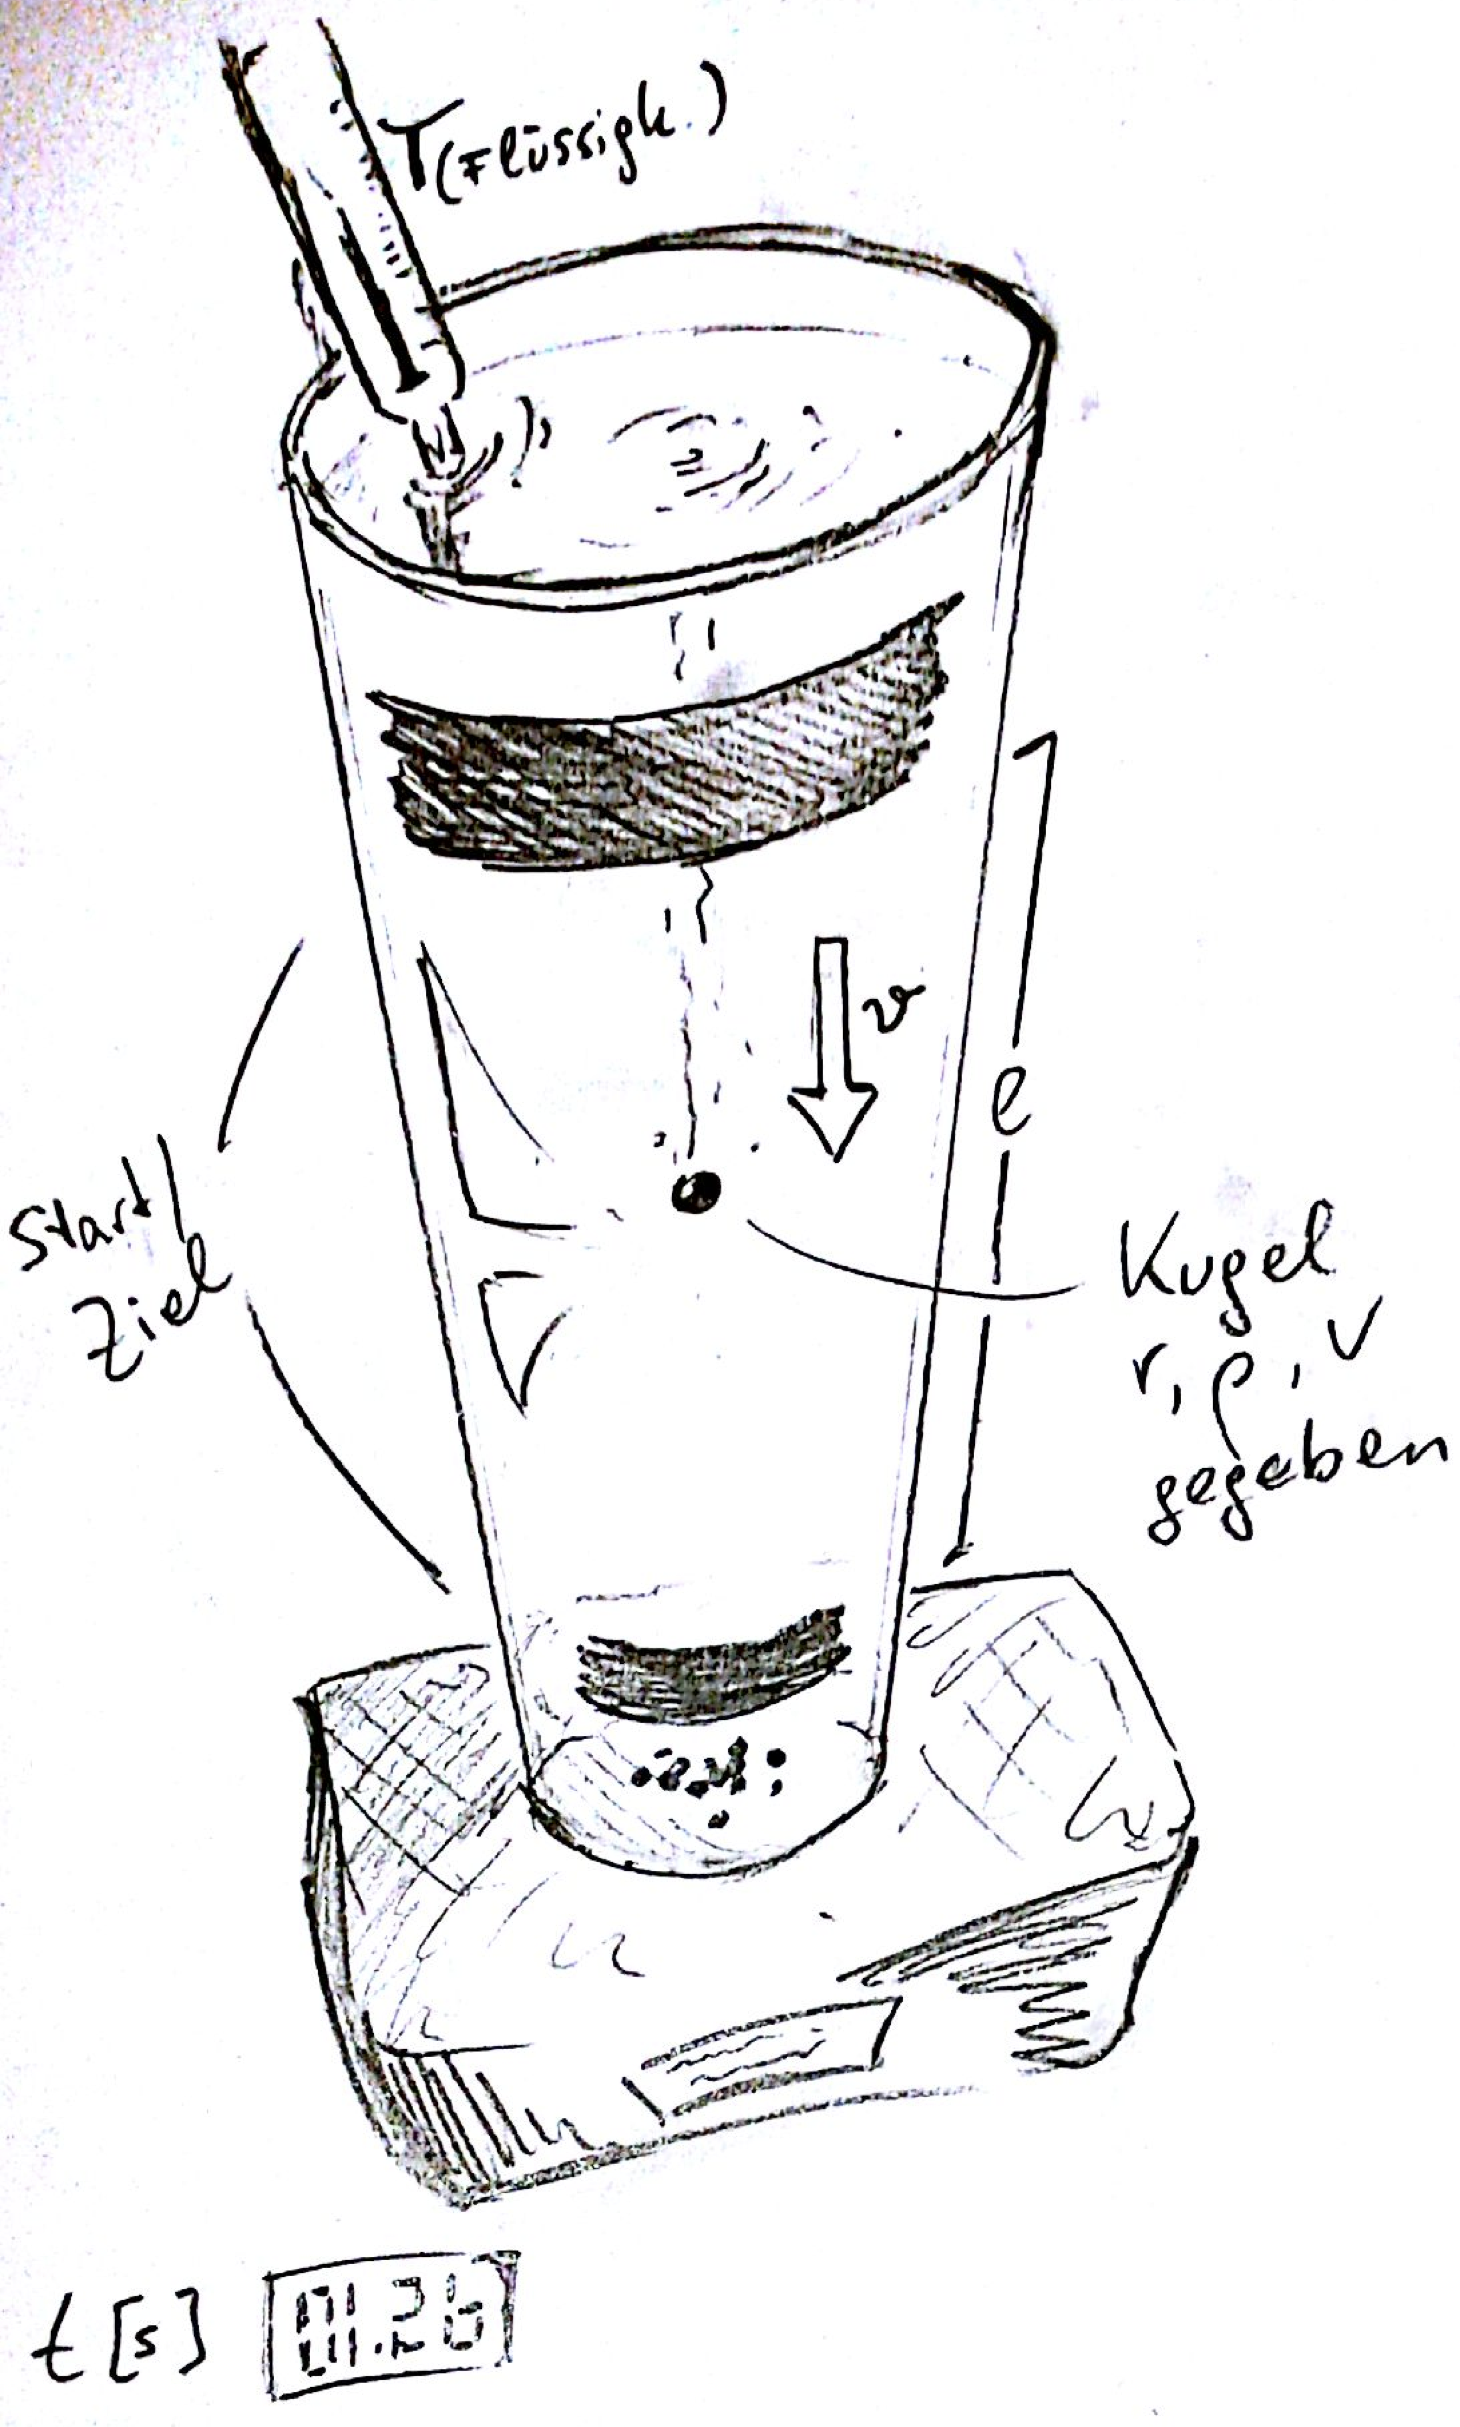 T(Flüssigk.)
v
l
Start/
Ziel
Kugel
r, ρ, V
gegeben
t [s] 01.26